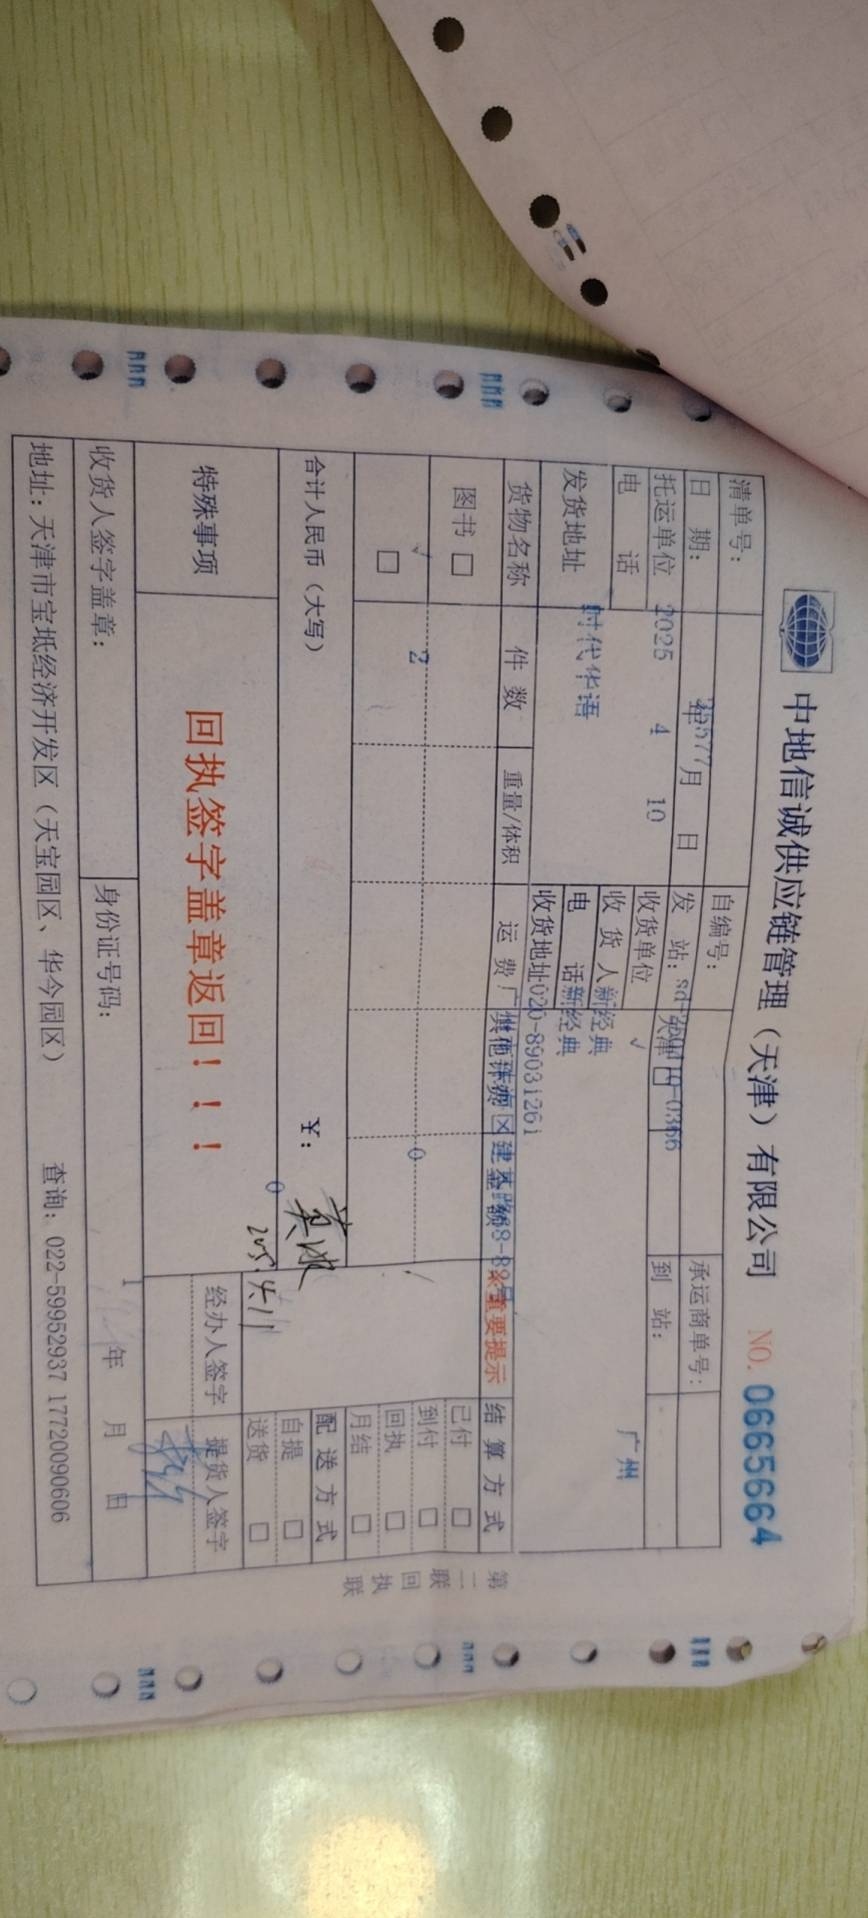 中地信诚供应链管理（天津）有限公司 NO. 0665664
清单号： 自编号： 承运商单号：
日 期： 年 月 日 发 站： 天津 到 站：
托运单位 2025 4 10 收货单位 广州
电 话 收 货 人 新经典
时代华语 电 话 新经典
发货地址 收货地址 020-89031261
货物名称 件 数 重量/体积 运 费 其他杂费 ※重要提示 结 算 方 式
图书 □ 已付 □
2 0 到付 □
√ □ 回执 □
月结 □
合计人民币（大写） ￥： 配 送 方 式
自提 □
0 送货 □
特殊事项 回执签字盖章返回！！！ 经办人签字 提货人签字
收货人签字盖章： 身份证号码： 1 年 月 日
地址：天津市宝坻经济开发区（天宝园区、华今园区） 查询：022-59952937 17720090606
第二联 回执联